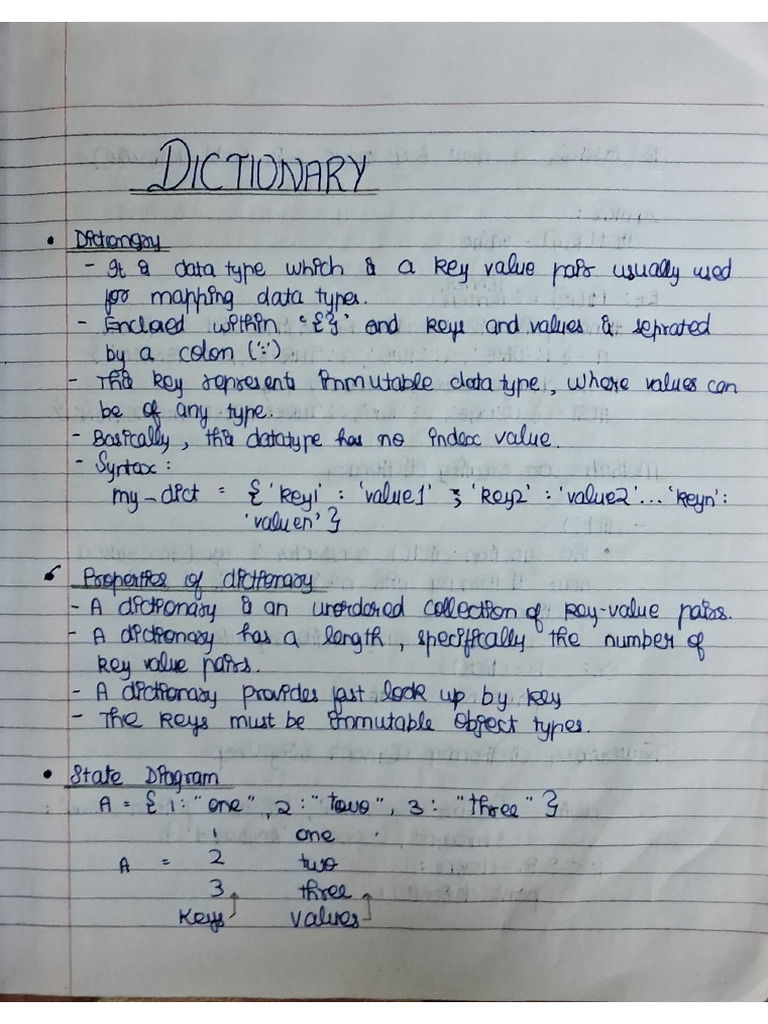 DICTIONARY
• Dictionary
- It is data type which is a key value pair usually used
for mapping data types.
- Enclosed within '{}' and keys and values is seprated
by a colon (':')
- This key represents immutable data type, where values can
be of any type.
- Basically, this datatype has no index value.
- Syntax:
my_dict = {'key1' : 'value1' 'key2' : 'value2'... 'keyn':
'valuen'}
• Properties of dictionary
- A dictionary is an unordered collection of key-value pairs.
- A dictionary has a length, specifically the number of
key value pairs.
- A dictionary provides fast look up by key
- The keys must be immutable object types.
• State Diagram
A = {1:"one", 2:"two", 3: "three"}
1 one
A = 2 two
3 three
keys values